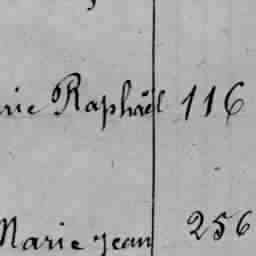 rie Raphaël 116
Marie Jean 256